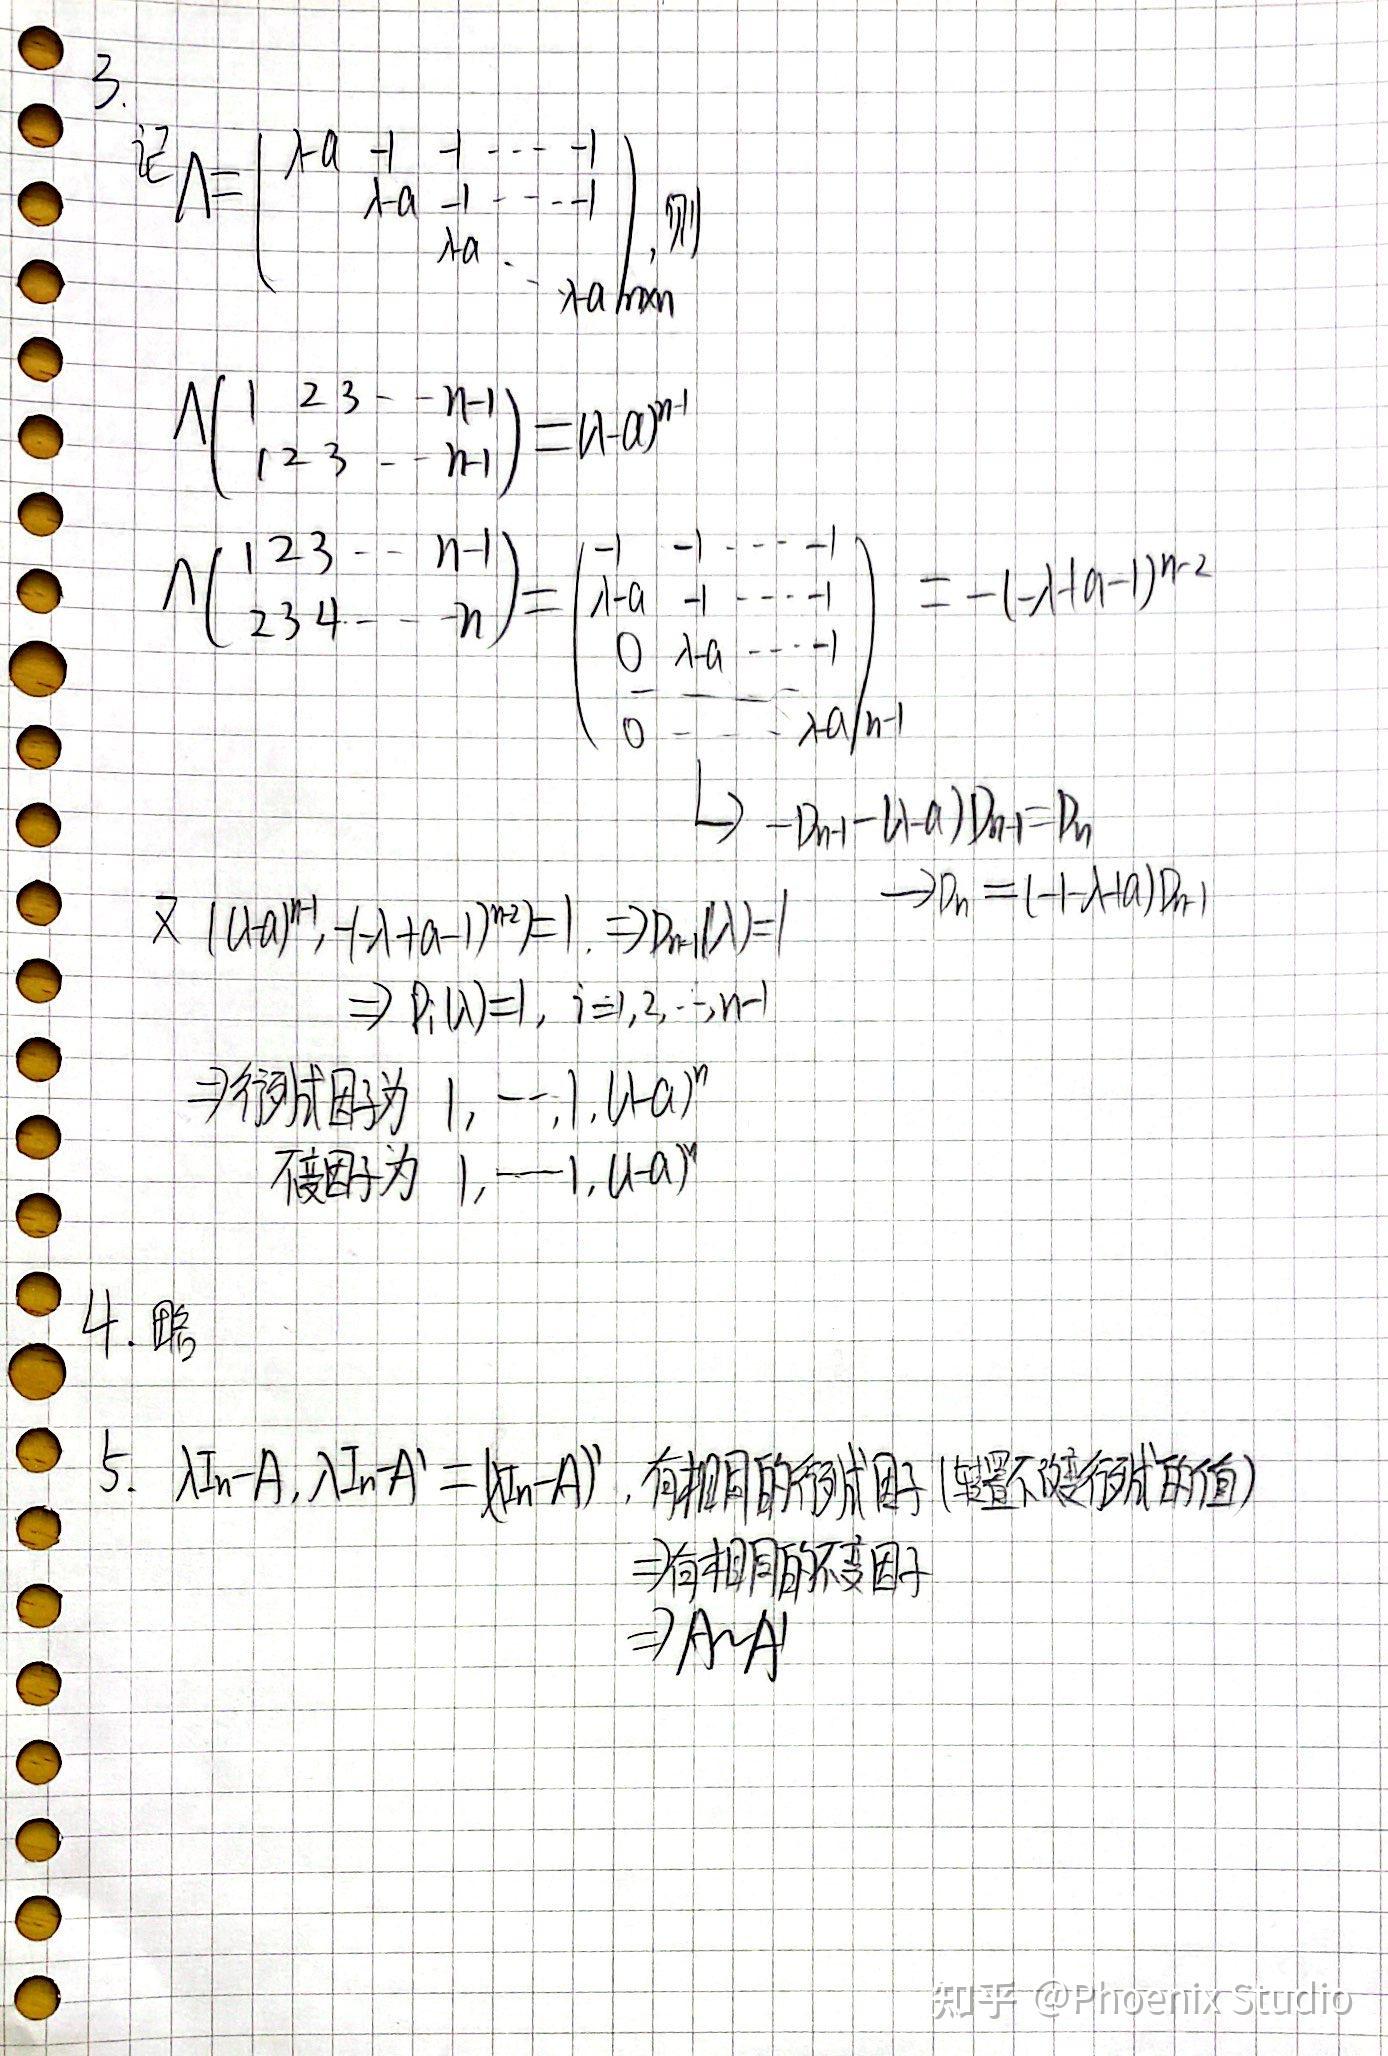 3.
记 Λ=
λ-a -1 -1 ---- -1
λ-a -1 ---- -1
λ-a
λ-a
n×n
,则
Λ(1 2 3 -- n-1
1 2 3 -- n-1) = (λ-a)^{n-1}
Λ(1 2 3 --- n-1
2 3 4 --- n) =
-1 -1 ---- -1
λ-a -1 ---- -1
0 λ-a ---- -1
0 ---- λ-a
n-1
= -(-λ+a-1)^{n-2}
↳ -D_{n-1} - (λ-a)D_{n-1} = D_n
→ D_n = (-1-λ+a)D_{n-1}
又 ((λ-a)^{n-1}, -(-λ+a-1)^{n-2}) = 1. ⇒ D_{n-1}(λ) = 1
⇒ D_i(λ) = 1, i = 1, 2, ..., n-1
⇒ 行列式因子为 1, ---, 1, (λ-a)^n
不变因子为 1, --- 1, (λ-a)^n
4.
5. λI_n-A, λI_n-A' = (λI_n-A)', 有相同的行列式因子 (转置不改变行列式的值)
⇒ 有相同的不变因子
⇒ A~A'
知乎 @Phoenix Studio